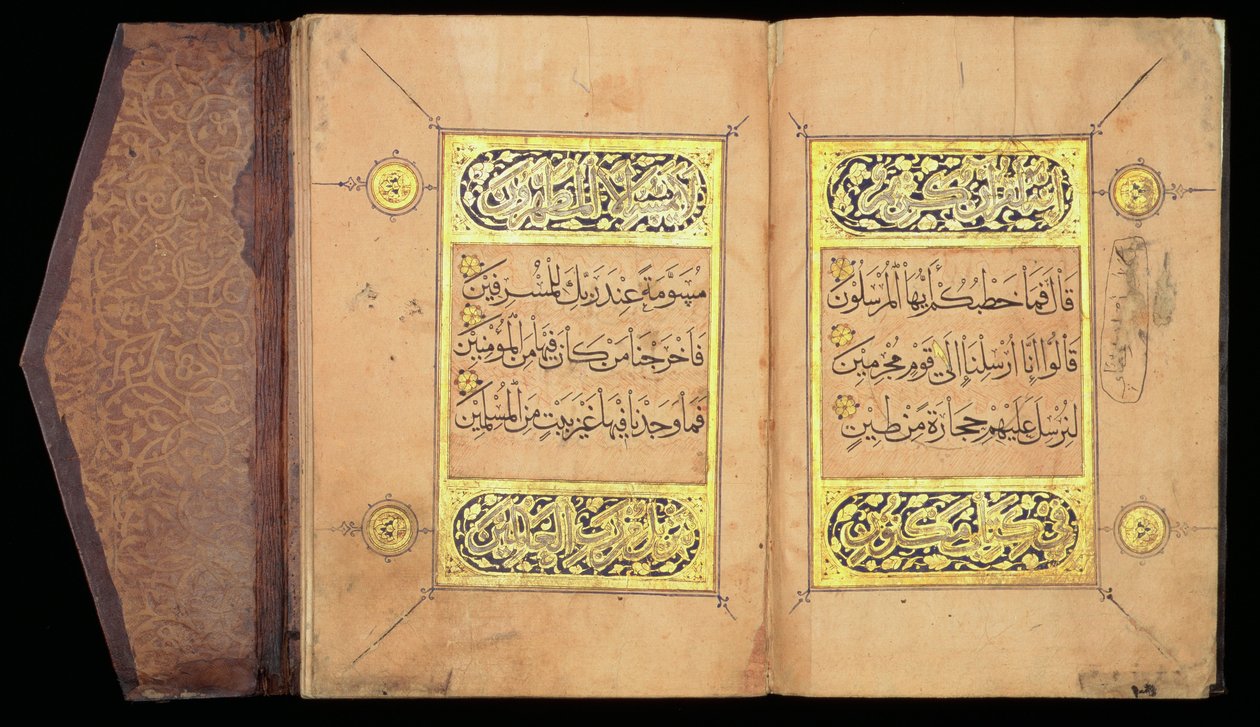 إنه لقرآن كريم
قَالَ فَمَا خَطْبُكُمْ أَيُّهَا الْمُرْسَلُونَ
قَالُوا إِنَّا أُرْسِلْنَا إِلَى قَوْمٍ مُجْرِمِينَ
لِنُرْسِلَ عَلَيْهِمْ حِجَارَةً مِنْ طِينٍ
في كتاب مكنون
لا يمسه إلا المطهرون
مُسَوَّمَةً عِنْدَ رَبِّكَ لِلْمُسْرِفِينَ
فَأَخْرَجْنَا مَنْ كَانَ فِيهَا مِنَ الْمُؤْمِنِينَ
فَمَا وَجَدْنَا فِيهَا غَيْرَ بَيْتٍ مِنَ الْمُسْلِمِينَ
تنزيل من رب العالمين